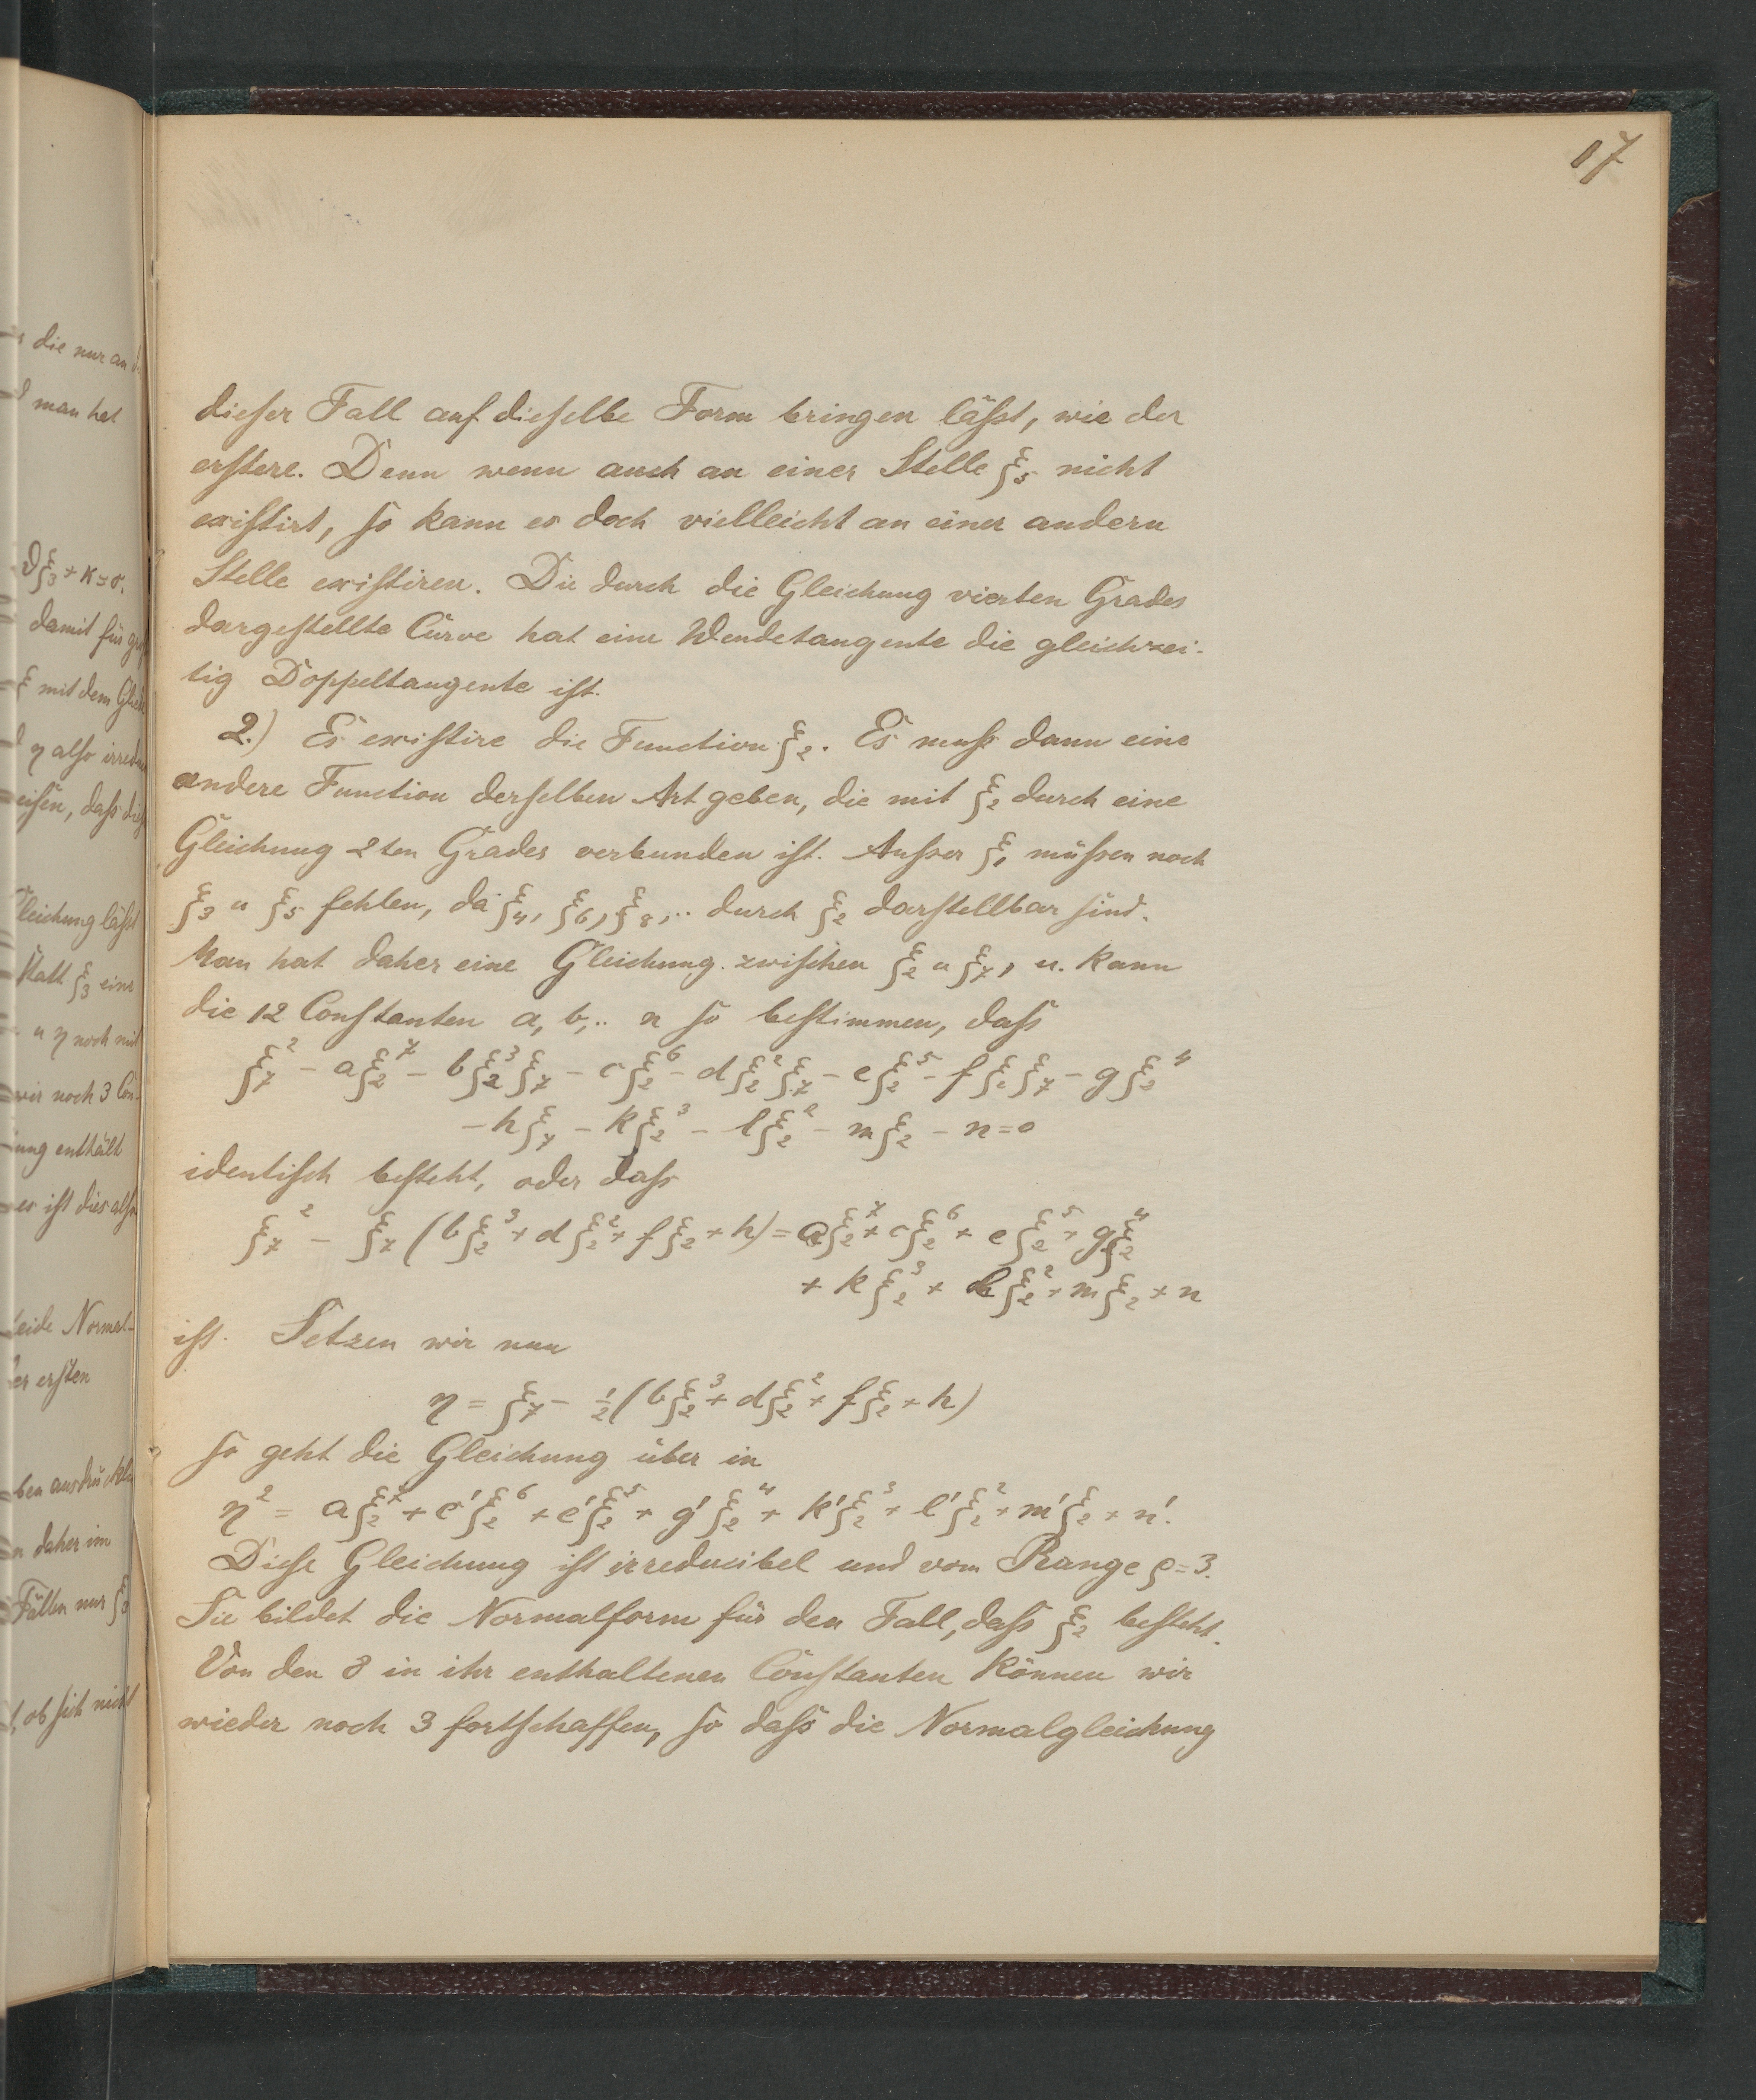 17
s die nur an
man hat
ξ₃ + K = σ.
damit für
ξ mit dem
η also
dass
Gleichung lässt
statt ξ₃ eine
u η noch mit
wir noch 3 Con-
ung enthält
es ist dies also
beide Normal-
er ersten
ben
daher im
Fällen nur ξ₃
ob sich nicht
dieser Fall auf dieselbe Form bringen lässt, wie der
erstere. Denn wenn auch an einer Stelle ξ₅ nicht
existirt, so kann es doch vielleicht an einer andern
Stelle existiren. Die durch die Gleichung vierten Grades
dargestellte Curve hat eine Wendetangente die gleichzei-
tig Doppeltangente ist.
2.) Es existire die Function ξ₂. Es muss dann eine
andere Function derselben Art geben, die mit ξ₂ durch eine
Gleichung 2ten Grades verbunden ist. Ausser ξ₁ müssen noch
ξ₃ u ξ₅ fehlen, da ξ₄, ξ₆, ξ₈,.. durch ξ₂ darstellbar sind.
Man hat daher eine Gleichung zwischen ξ₂ u ξ₇, u. kann
die 12 Constanten a, b,.. n so bestimmen, dass
ξ₇² - aξ₂⁷ - bξ₂³ξ₇ - cξ₂⁶ - dξ₂²ξ₇ - eξ₂⁵ - fξ₂ξ₇ - gξ₂⁴
- hξ₇ - kξ₂³ - lξ₂² - mξ₂ - n = 0
identisch besteht, oder dass
ξ₇² - ξ₇ (bξ₂³ + dξ₂² + fξ₂ + h) = aξ₂⁷ + cξ₂⁶ + eξ₂⁵ + gξ₂⁴
+ kξ₂³ + lξ₂² + mξ₂ + n
ist. Setzen wir nun
η = ξ₇ - ½(bξ₂³ + dξ₂² + fξ₂ + h)
so geht die Gleichung über in
η² = aξ₂⁷ + c'ξ₂⁶ + e'ξ₂⁵ + g'ξ₂⁴ + k'ξ₂³ + l'ξ₂² + m'ξ₂ + n'.
Diese Gleichung ist irreducibel und vom Range ρ = 3.
Sie bildet die Normalform für den Fall, dass ξ₂ besteht.
Von den 8 in ihr enthaltenen Constanten können wir
wieder noch 3 fortschaffen, so dass die Normalgleichung